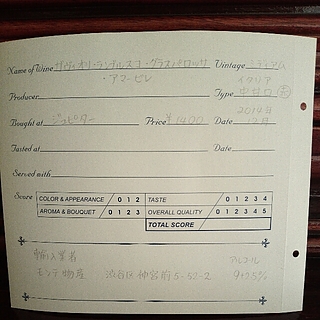 Name of Wine サヴィオリ・ランブルスコ・グラスパロッサ Vintage
・アマービレ イタリア
Producer Type 中甘口 赤
2014年
Bought at ジュピター Price ¥1400 Date 12月
Tasted at Date
Served with
Score COLOR & APPEARANCE 0 1 2 TASTE 0 1 2 3 4
AROMA & BOUQUET 0 1 2 3 OVERALL QUALITY 0 1 2 3 4 5
TOTAL SCORE
輸入業者 アルコール
モンテ物産 渋谷区神宮前5-52-2